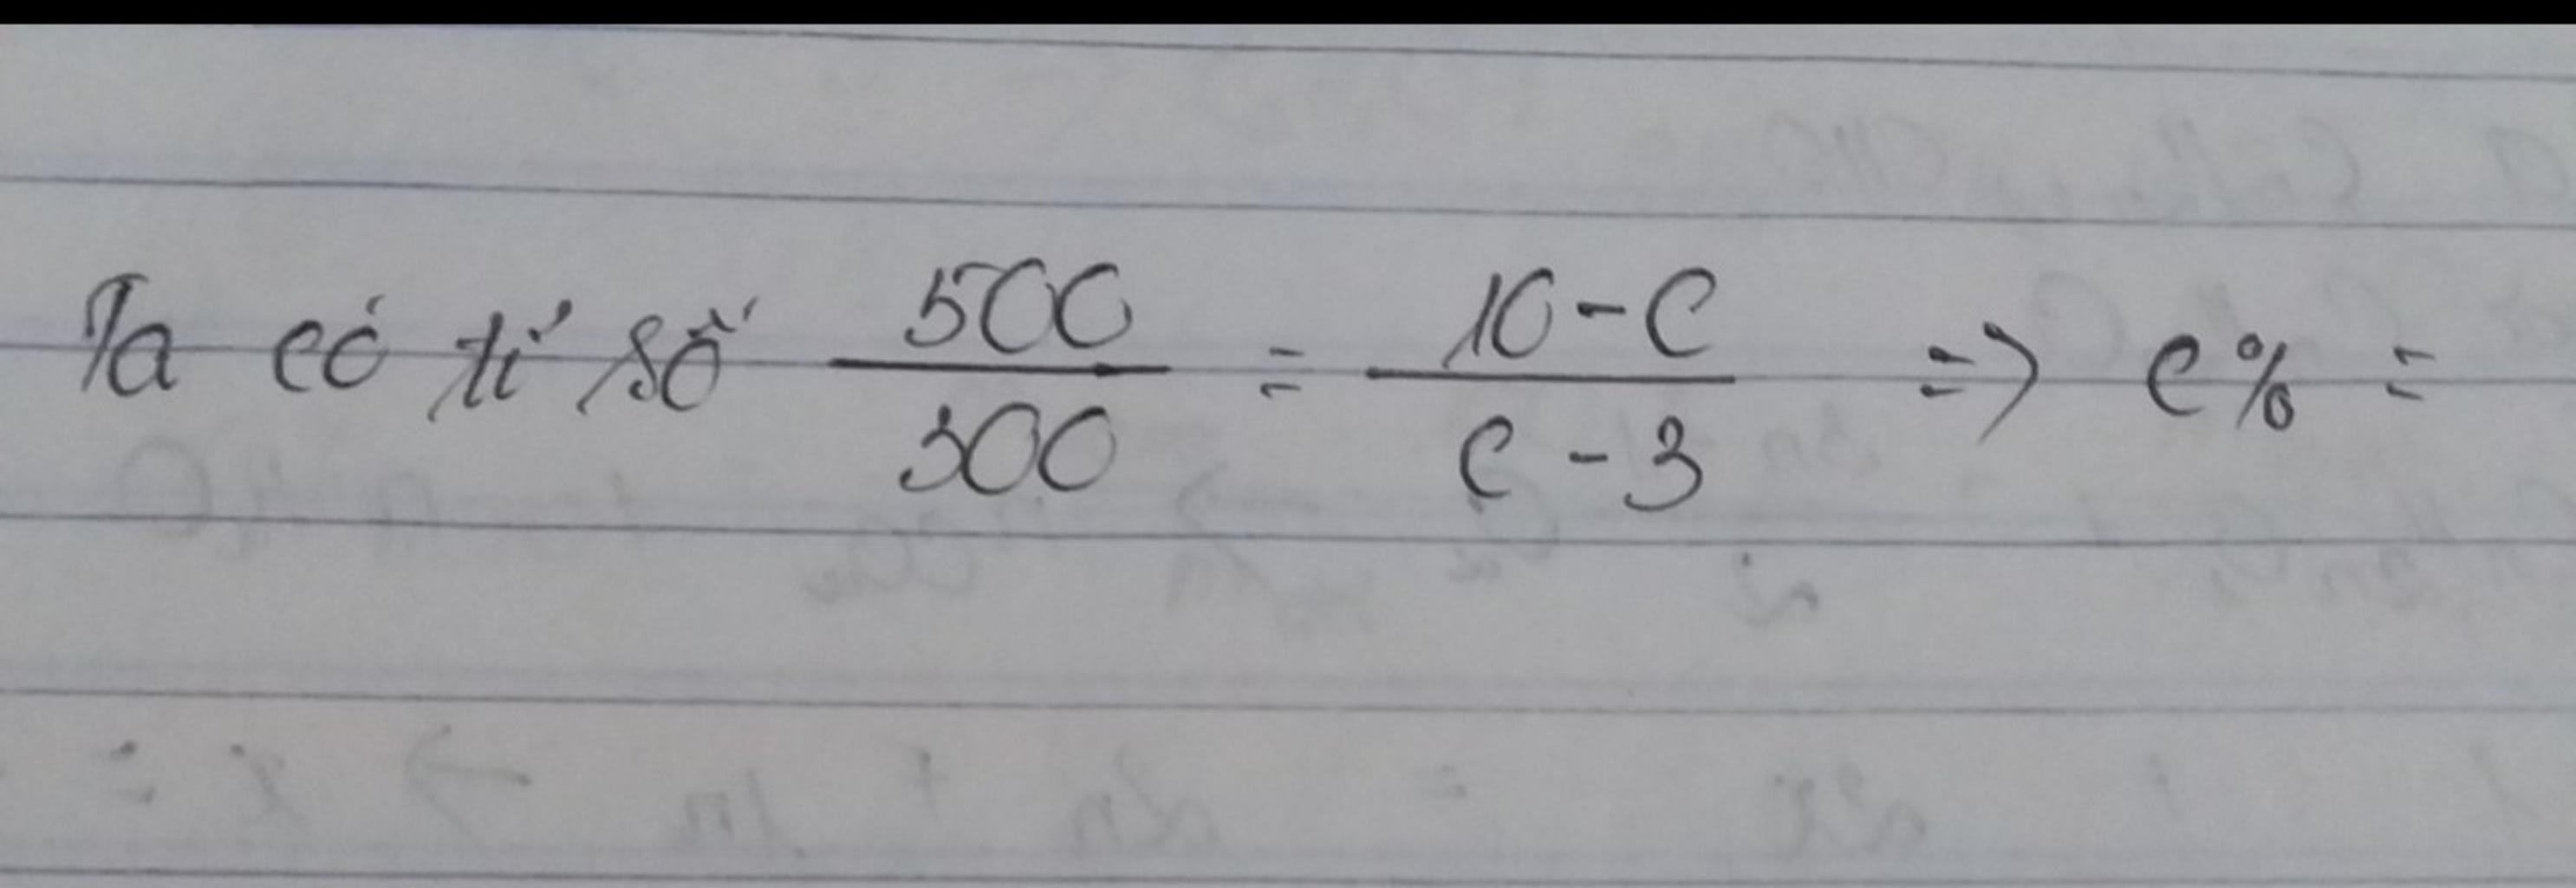 Ta có tỉ số 500/300 = 10-C/C-3 => C% =